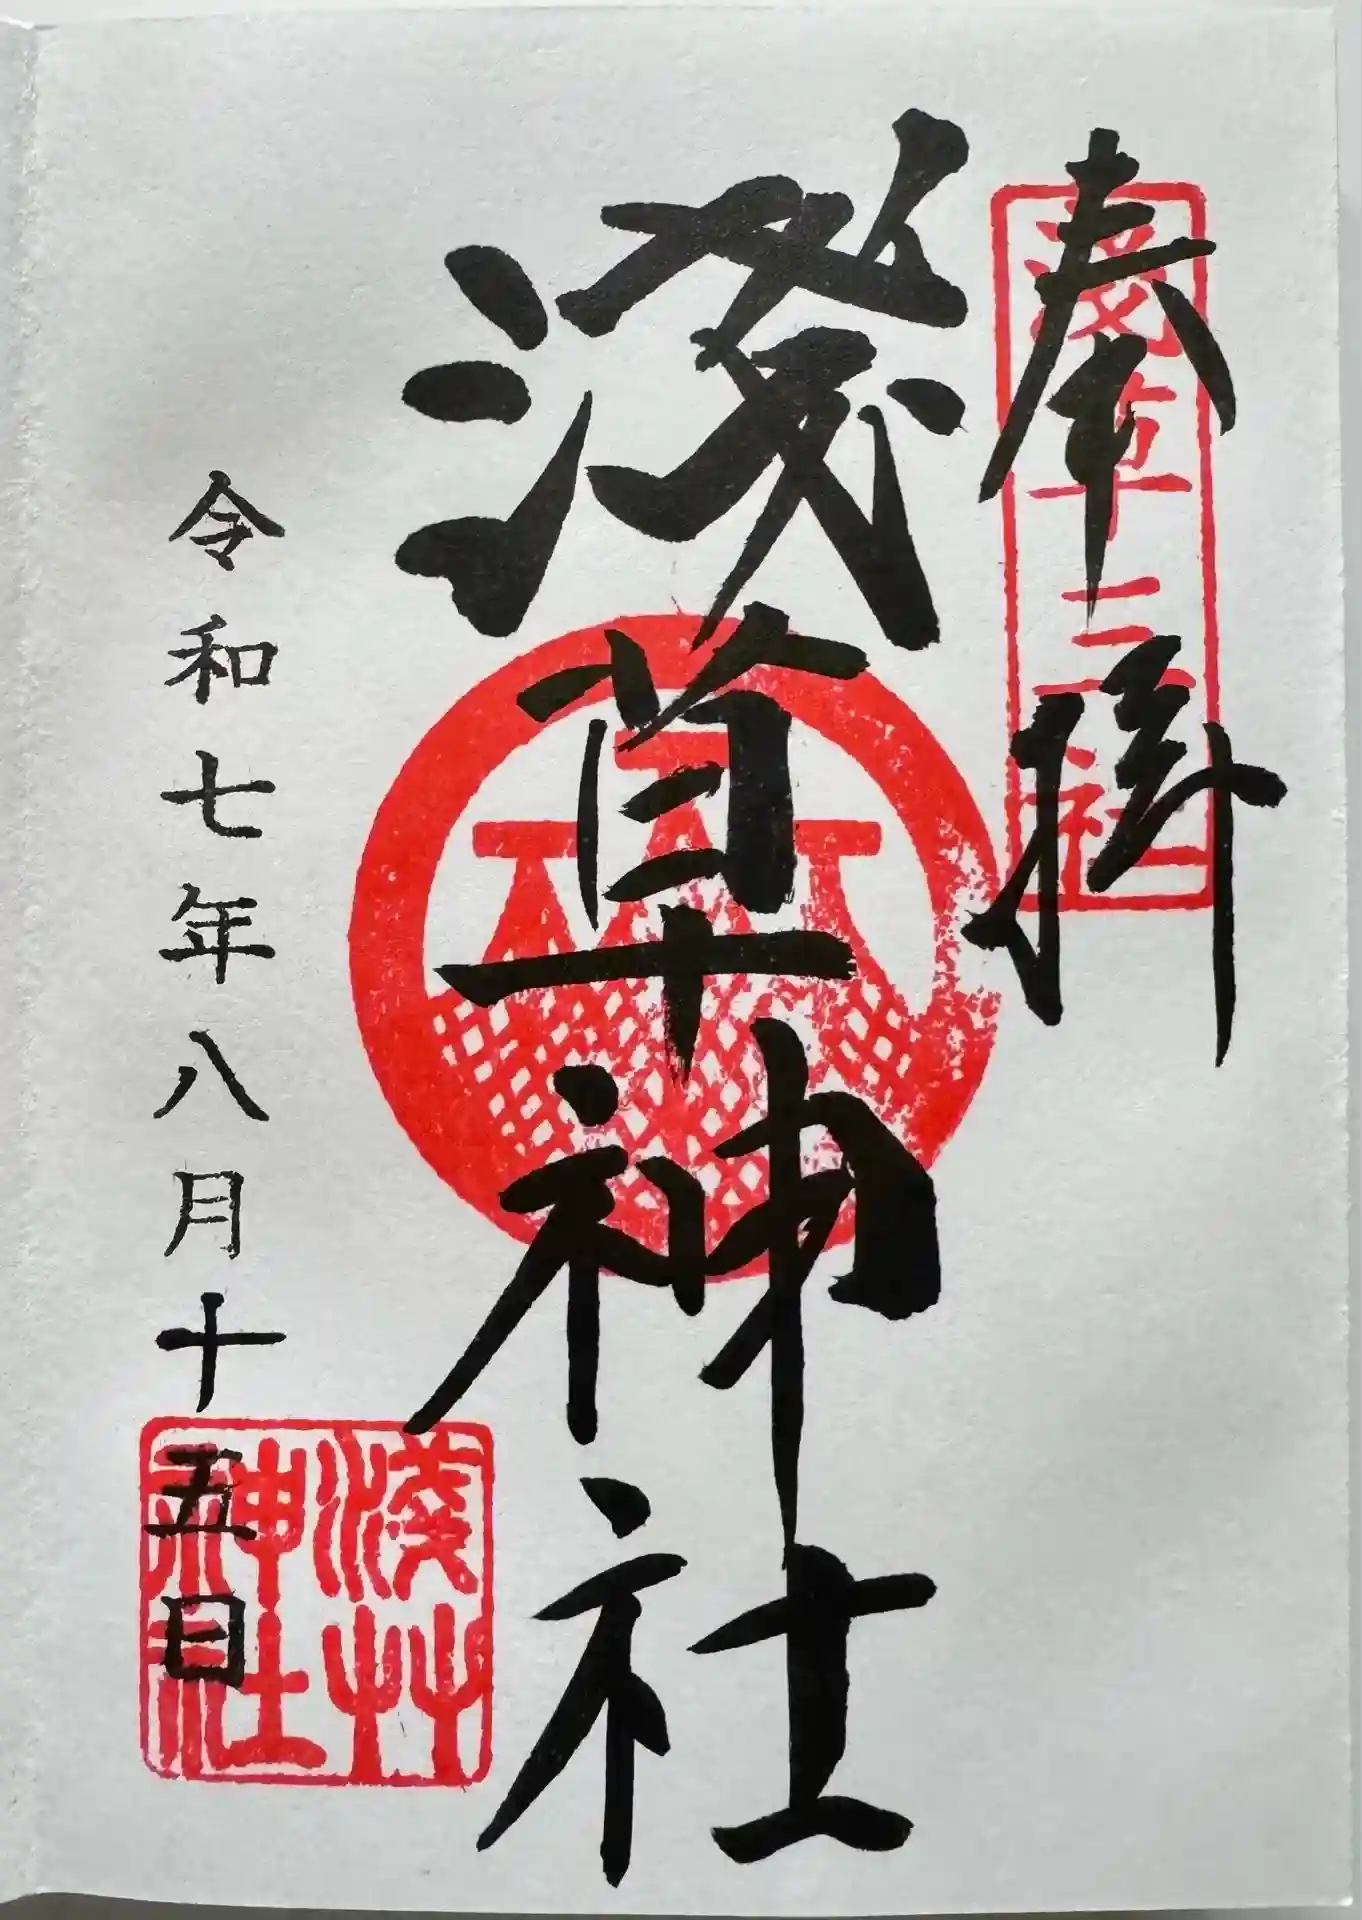 奉拝
淺草三社
淺草神社
令和七年八月十五日
淺草神社